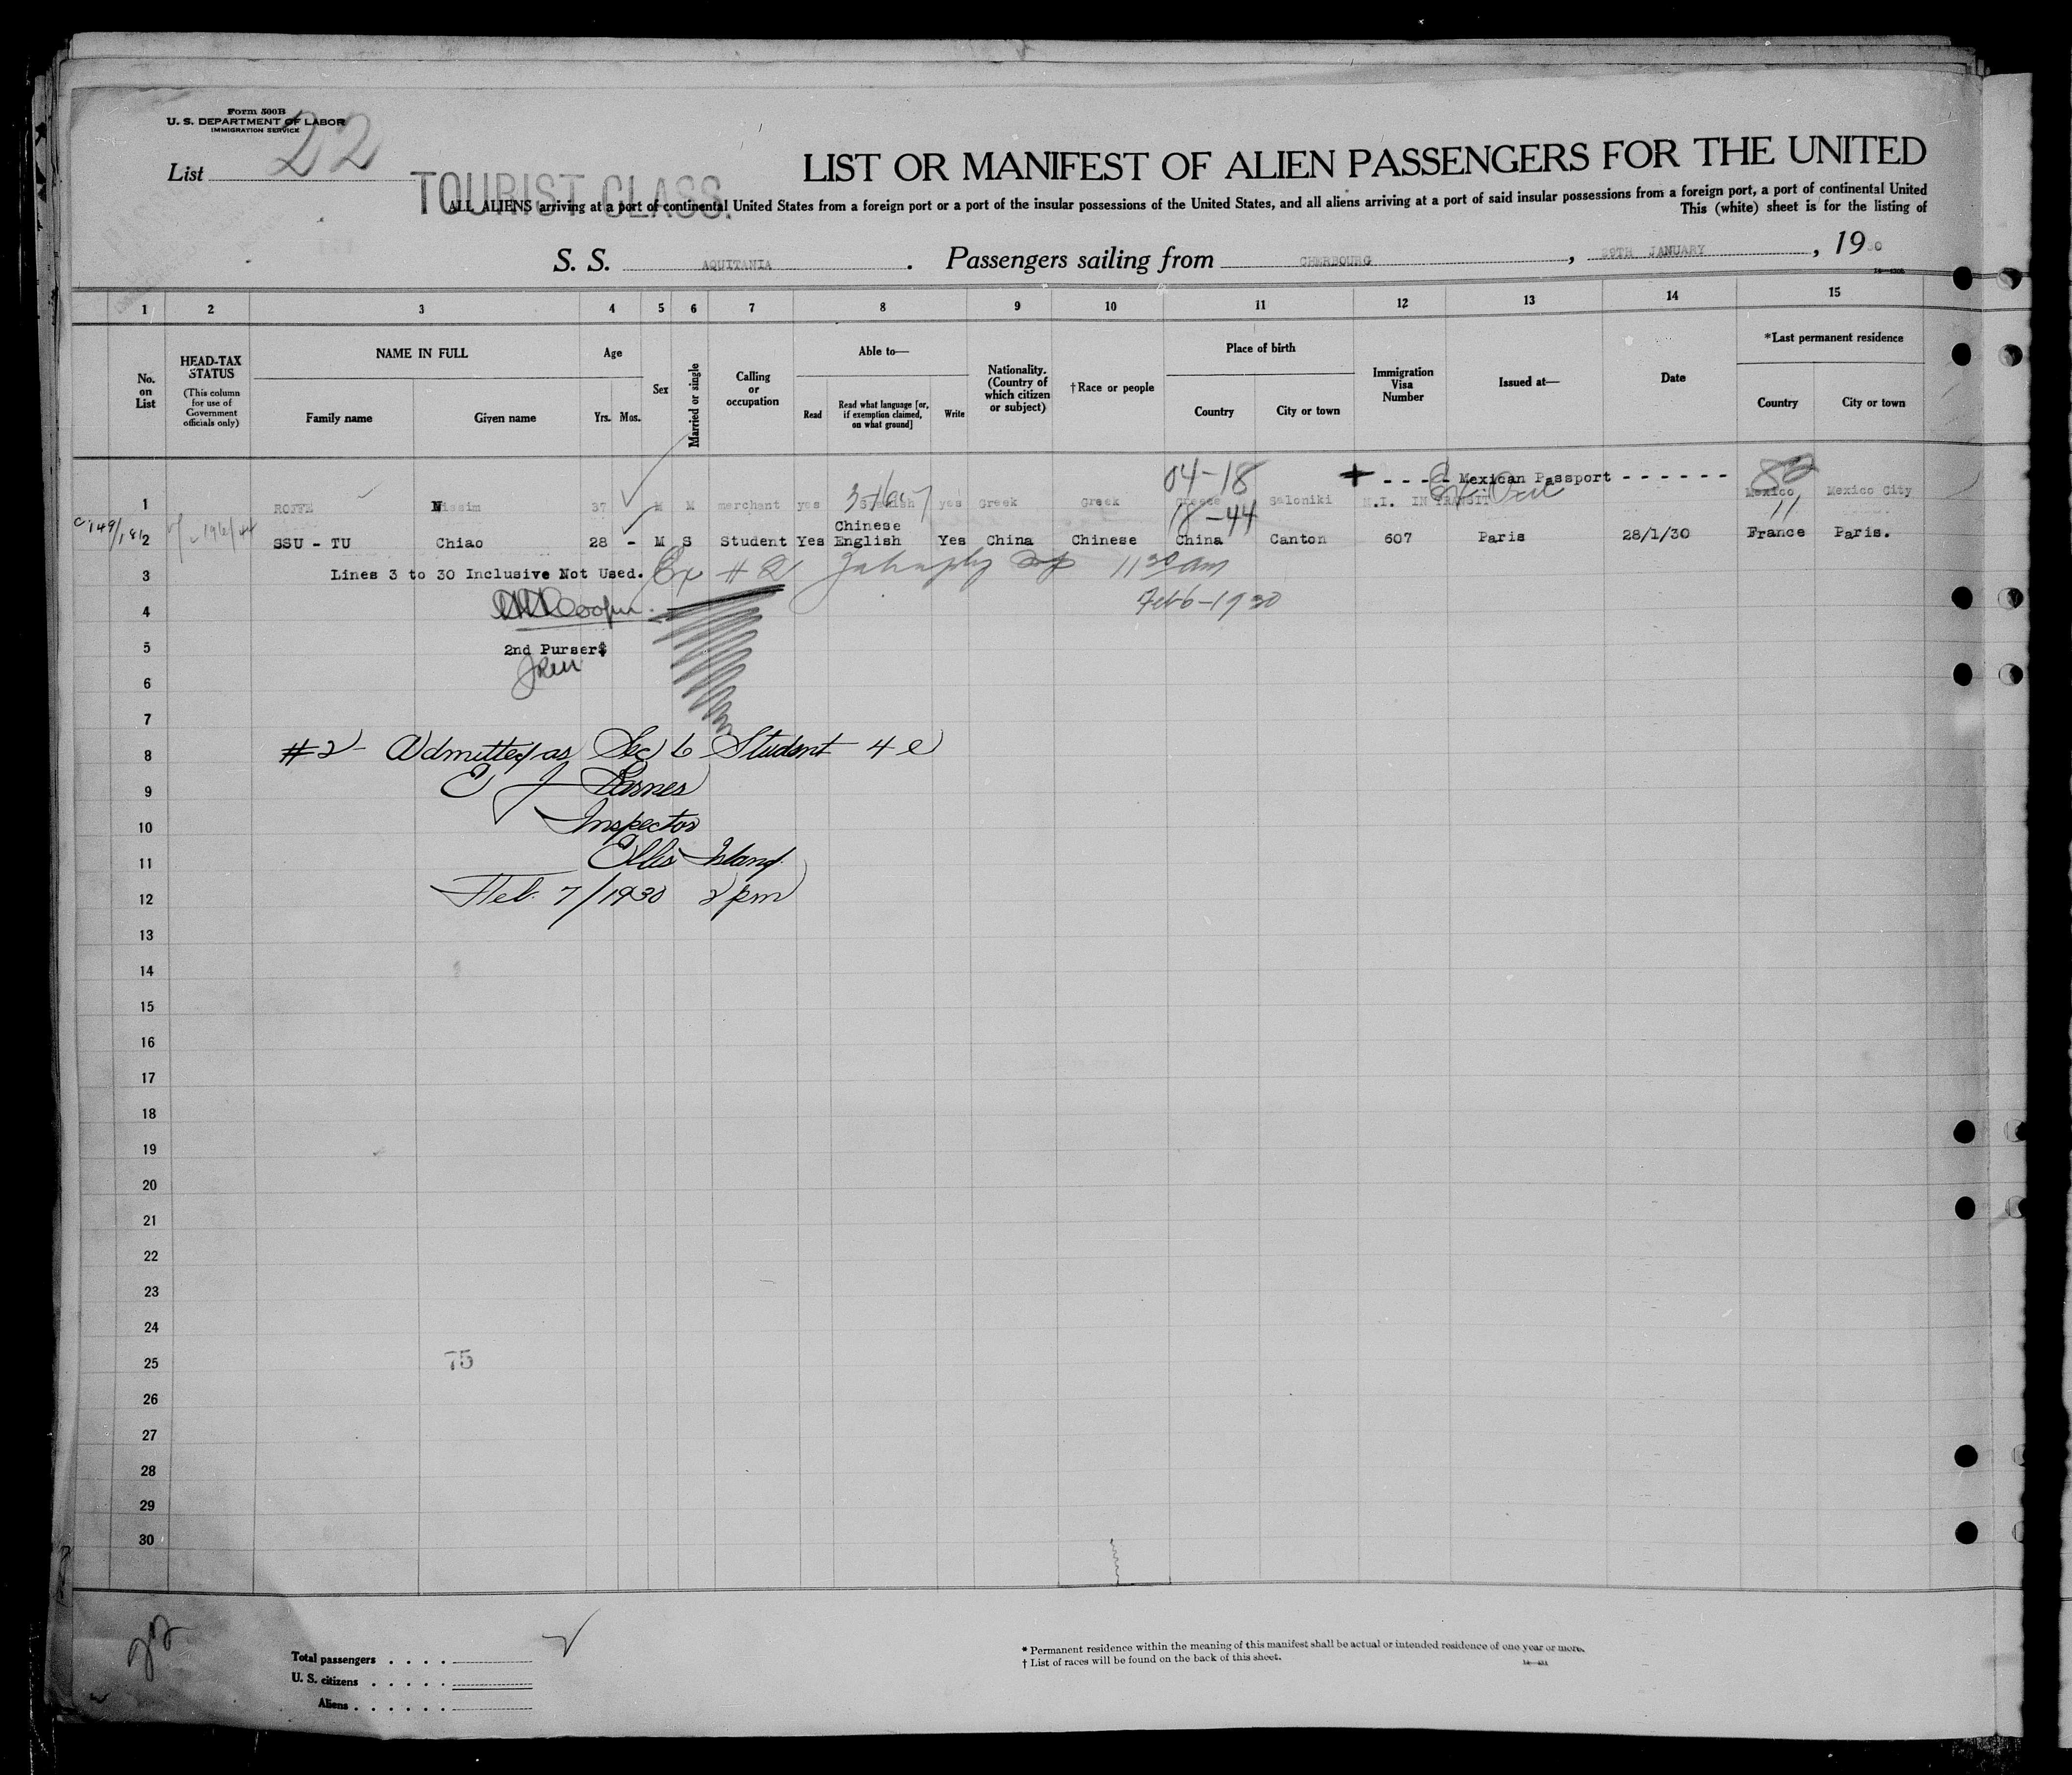 Form 500B
U. S. DEPARTMENT OF LABOR
IMMIGRATION SERVICE
List 22
TOURIST CLASS.
LIST OR MANIFEST OF ALIEN PASSENGERS FOR THE UNITED
ALL ALIENS arriving at a port of continental United States from a foreign port or a port of the insular possessions of the United States, and all aliens arriving at a port of said insular possessions from a foreign port, a port of continental United
This (white) sheet is for the listing of
S. S. AQUITANIA. Passengers sailing from CHERBOURG, 29TH JANUARY, 1930
1 2 3 4 5 6 7 8 9 10 11 12 13 14 15
No. on List
HEAD-TAX STATUS
(This column for use of Government officials only)
NAME IN FULL
Family name Given name
Age
Yrs. Mos.
Sex
Married or single
Calling or occupation
Able to—
Read
Read what language [or, if exemption claimed, on what ground]
Write
Nationality. (Country of which citizen or subject)
†Race or people
Place of birth
Country City or town
Immigration Visa Number
Issued at—
Date
*Last permanent residence
Country City or town
04-18 - - - - Mexican Passport - - - - - -
1 ROFFE Nissim 37 M M merchant yes Spanish yes Greek Greek Greece Saloniki IN TRANSIT Mexico Mexico City
18-44 11
Chinese
2 SSU - TU Chiao 28 - M S Student Yes English Yes China Chinese China Canton 607 Paris 28/1/30 France Paris.
3 Lines 3 to 30 Inclusive Not Used. Ex # 2 11 30 am
4 Cooper. Feb 6-1930
5 2nd Purser
6
7
8 #2- Admitted as Sec 6 Student 4 e
9 E J Barnes
10 Inspector
11 Ellis Island
12 Feb. 7/1930 2 pm
13
14
15
16
17
18
19
20
21
22
23
24
25 75
26
27
28
29
30
Total passengers . . . .
U. S. citizens . . . . .
Aliens . . . . . .
* Permanent residence within the meaning of this manifest shall be actual or intended residence of one year or more.
† List of races will be found on the back of this sheet.